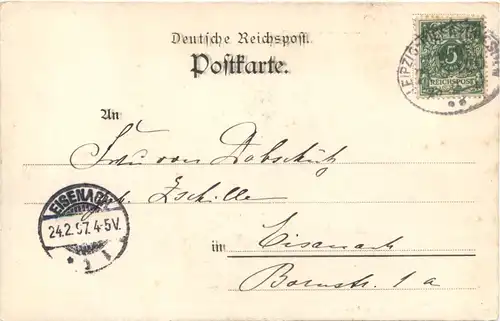 Deutsche Reichspost.
Postkarte.
LEIPZIG
5
REICHSPOST
An
Frau von Dobschütz
geb. Zschille
EISENACH
24.2.97.4-5V.
* 1 *
in Eisenach
Bornstr. 1 a